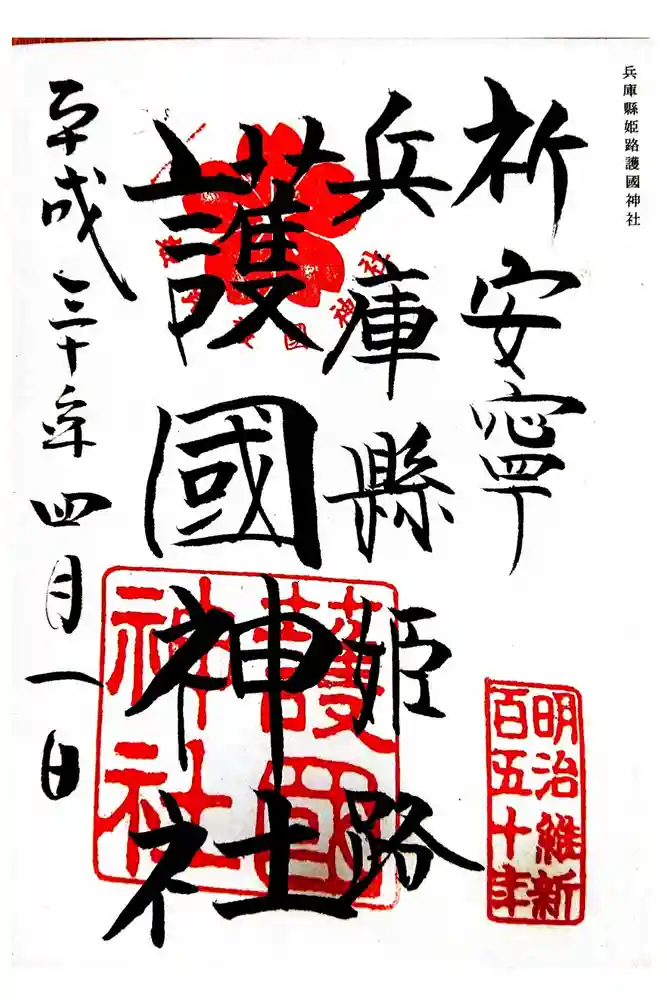 兵庫縣姫路護國神社
祈安寧
兵庫縣姫路
護國神社
平成三十年四月一日
護國
神社
明治維新
百五十年